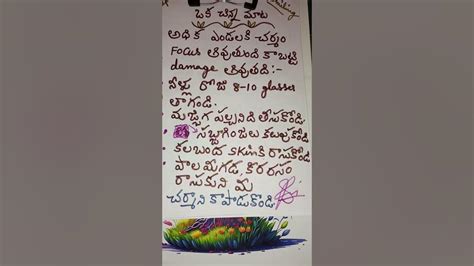 ఒక చిన్న మాట
అధిక ఎండలకి చర్మం
Focus అవుతుంది కాబట్టి
damage అవుతది:-
నీళ్లు రోజు 8-10 glasses
తాగండి.
మజ్జిగ పల్చనిది తీసుకోండి.
సబ్జాగింజలు కలుపుకోండి
కలబంద skinకి రాసుకోండి
పాల మీగడ, కీర రసం
రాసుకుని మీ
చర్మాని కాపాడుకోండి.